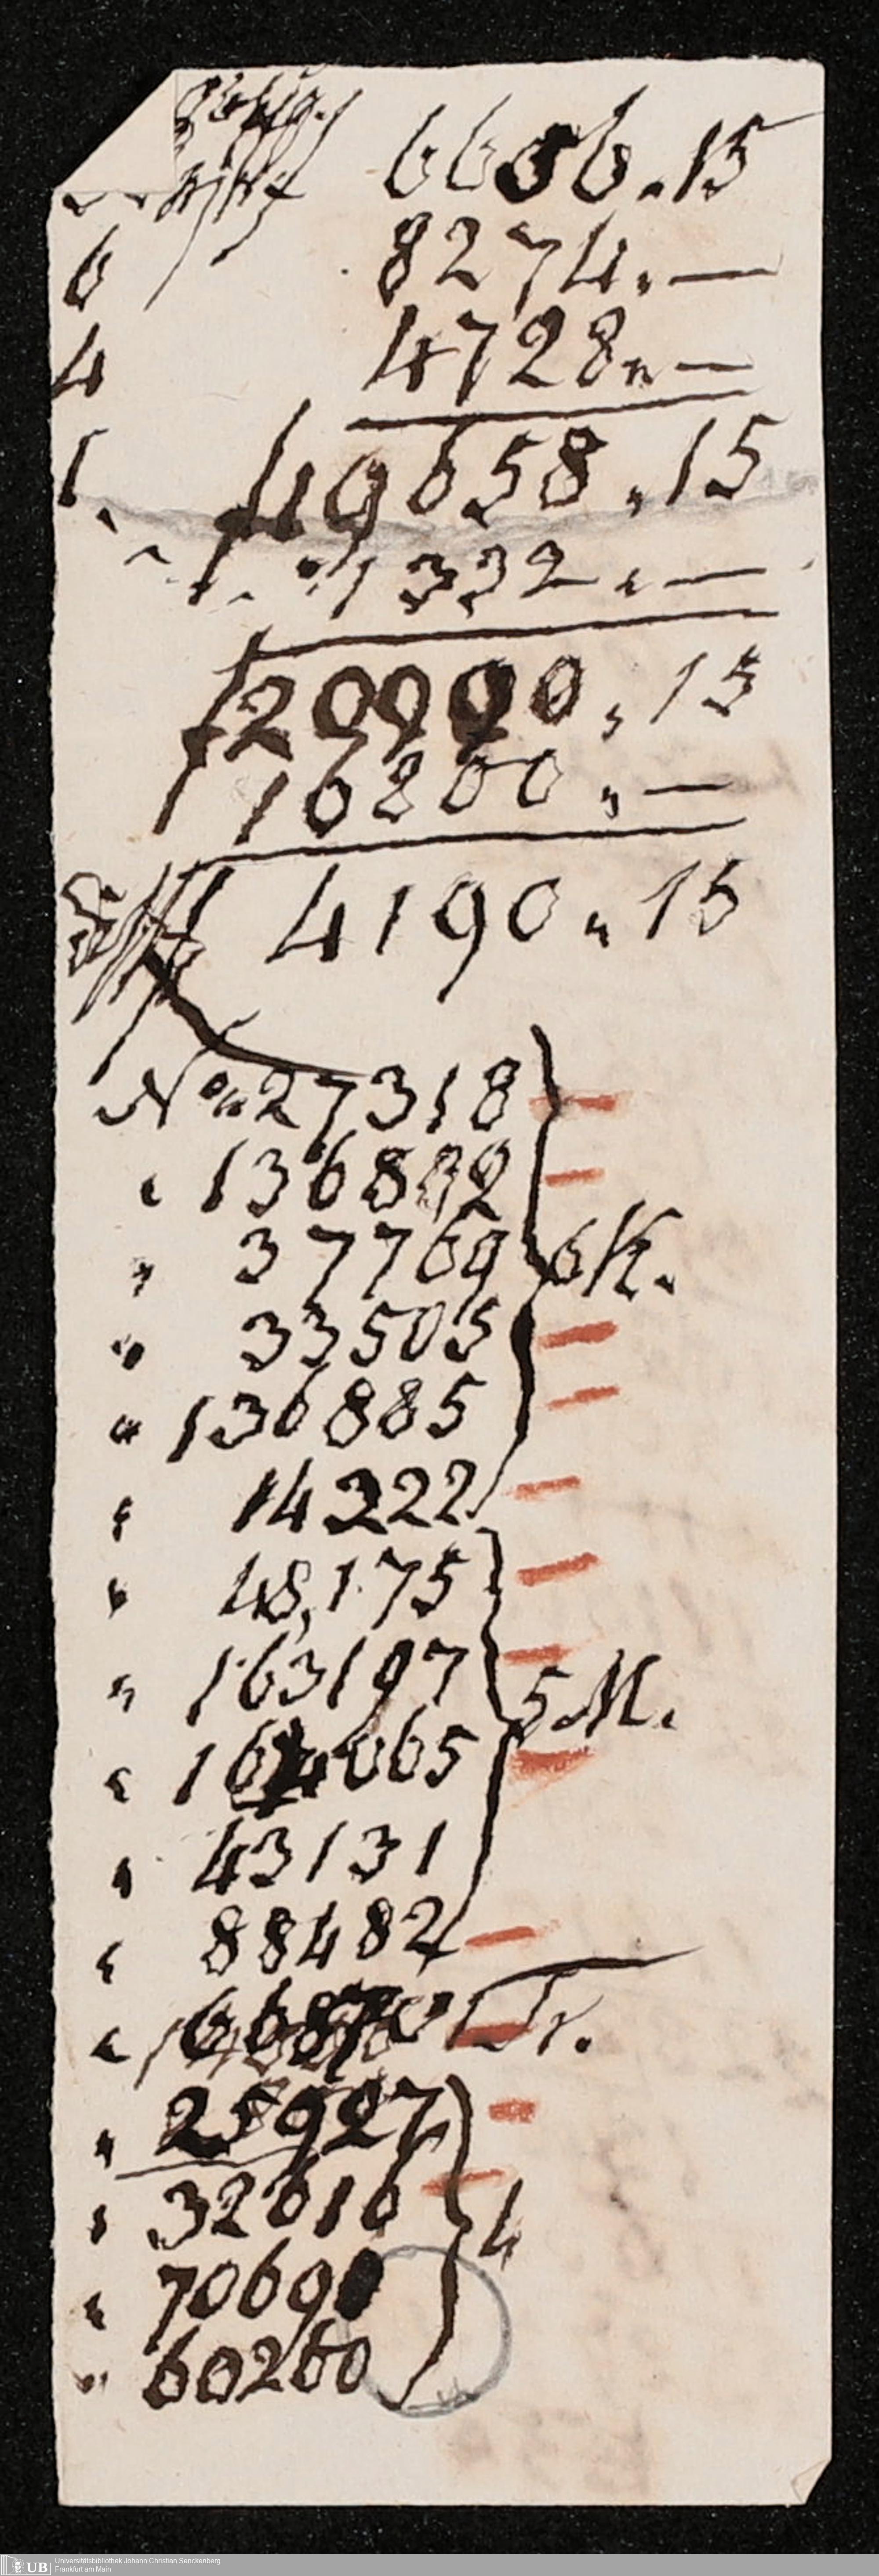 6656.15
6 8274.—
4 4728.—
1. f 19658.15
1332.—
f 20990.15
f 16800.—
f 4190.15
No. 27318
" 136882
" 37769 6 K.
" 33505
" 136885
" 14222
" 48,175
" 163197
5 M.
" 164065
" 43131
" 88482
" Fr.
" 25927
" 32616 4
" 7069
" 60260
UB Universitätsbibliothek Johann Christian Senckenberg
Frankfurt am Main